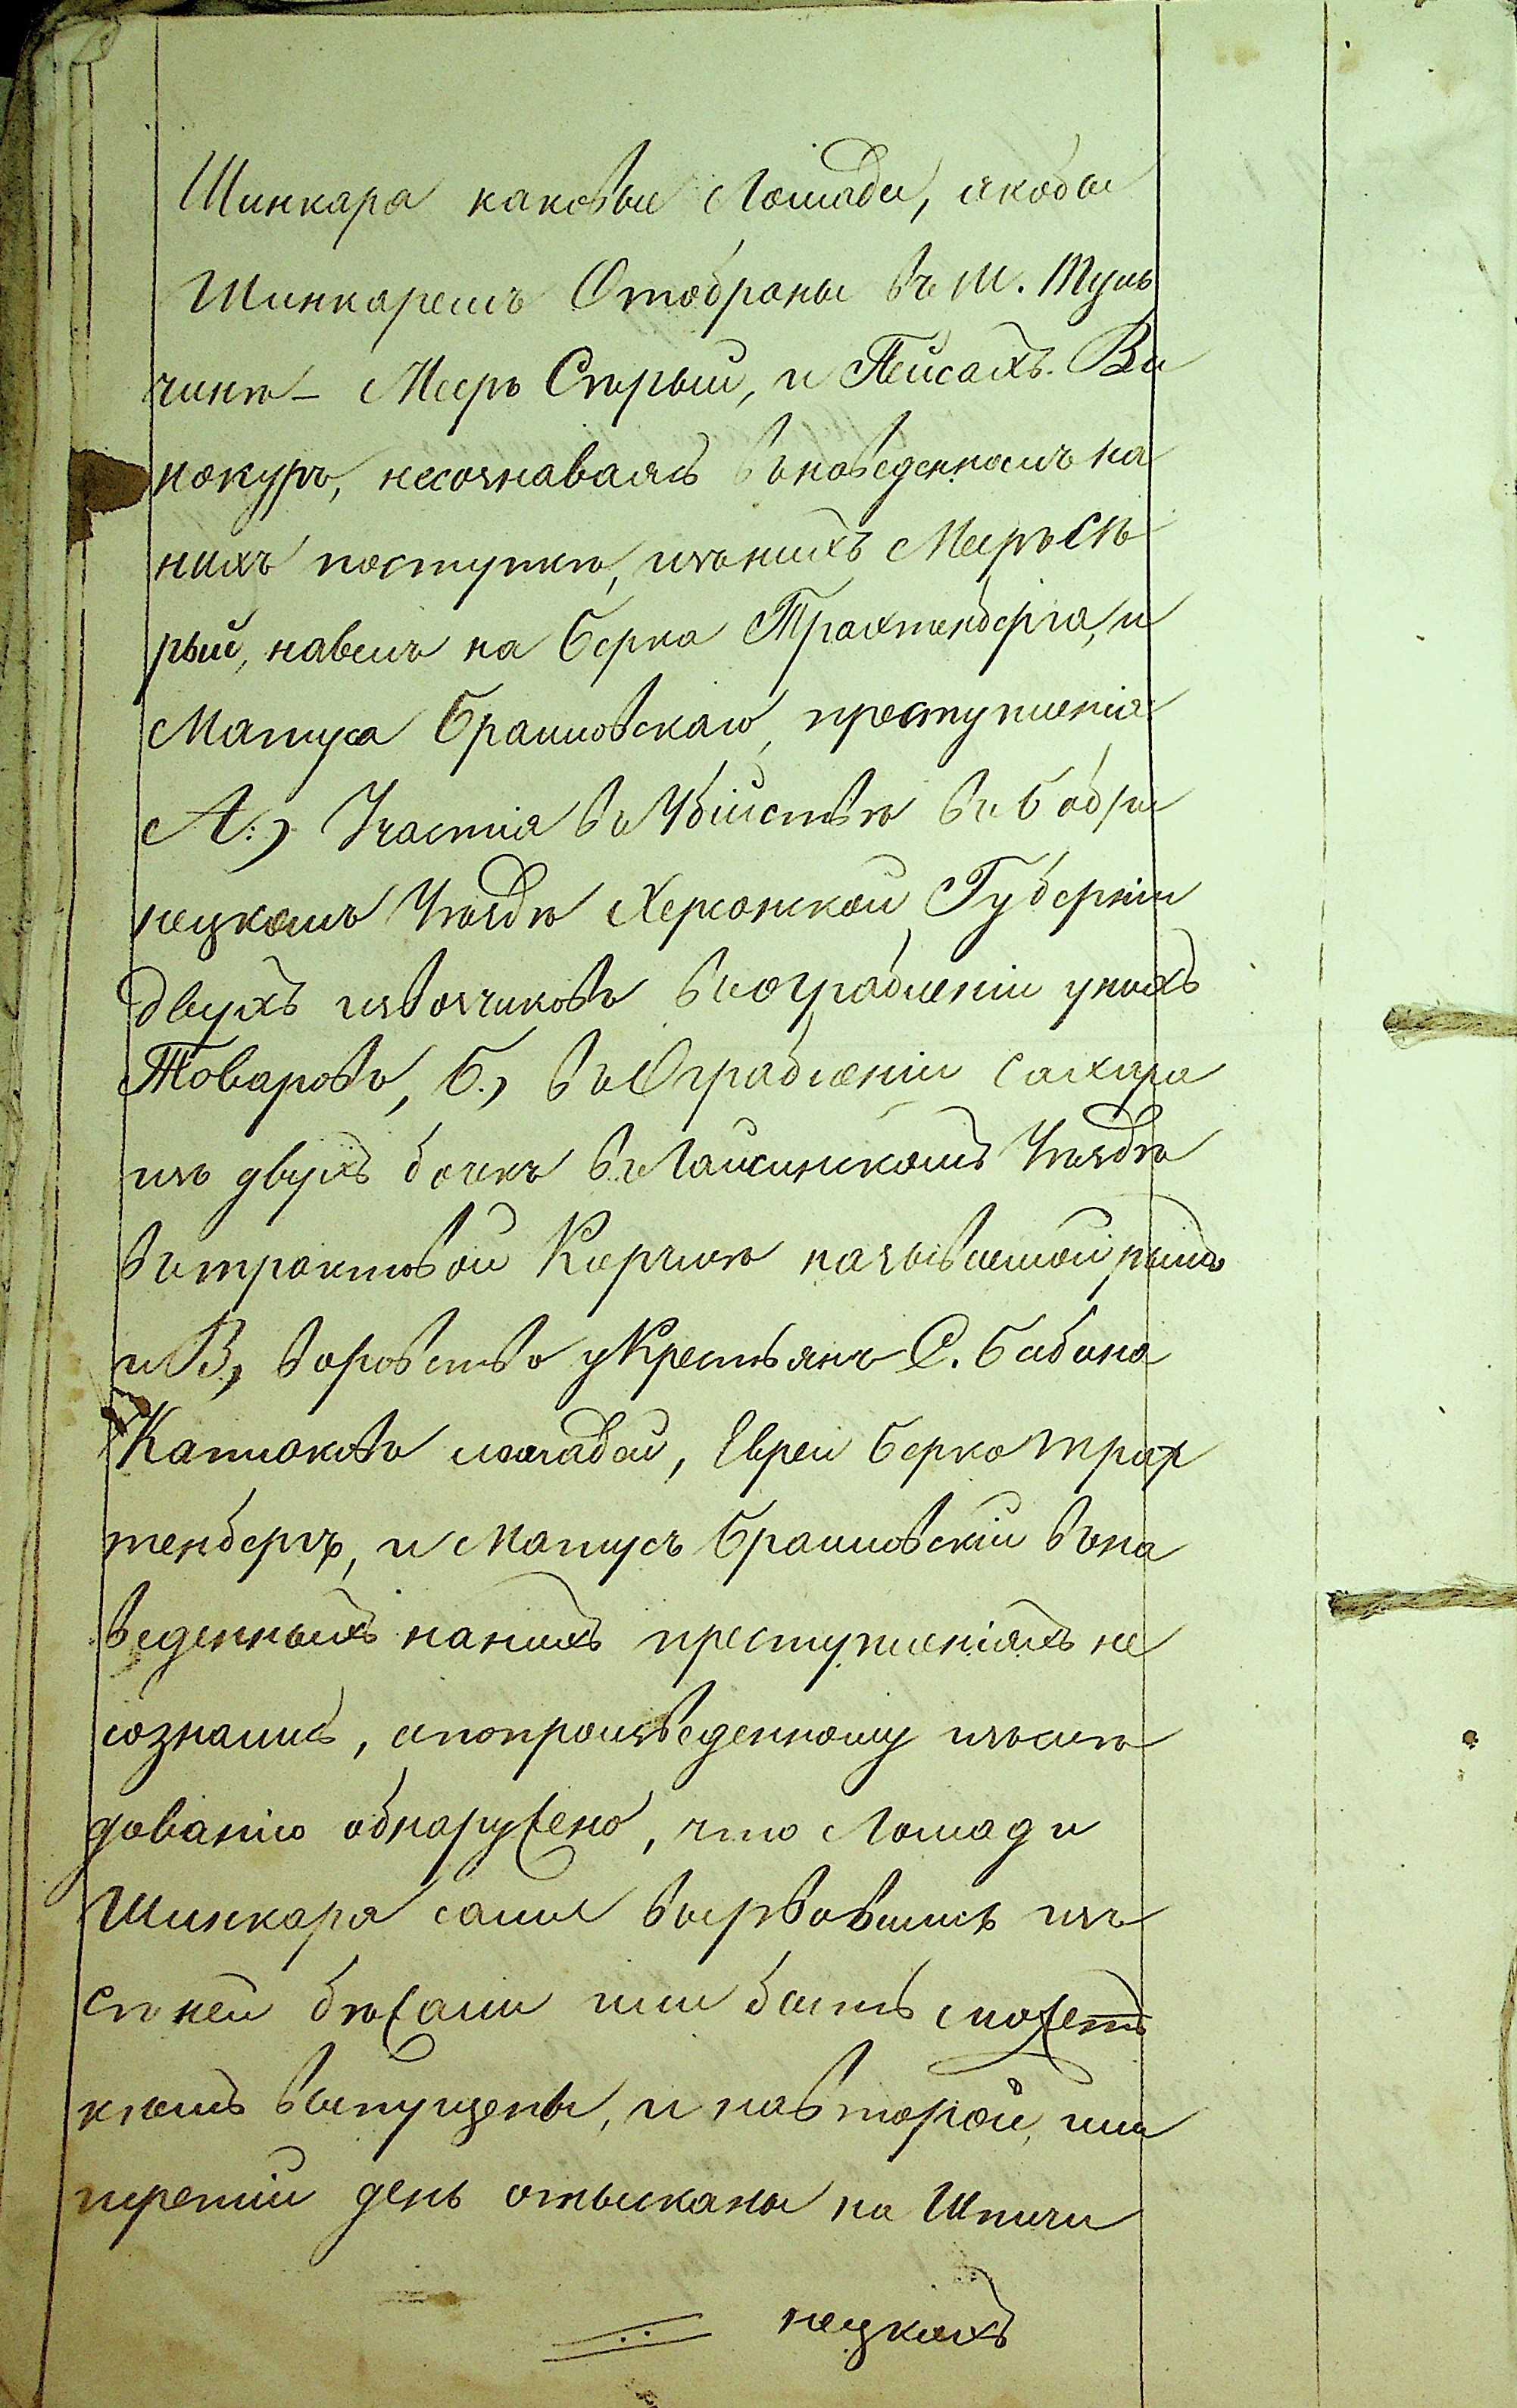 Шинкара каковые Лошади, якобы
Шинкаремъ Отобраны въ м. Туль
чинѣ – Мееръ Старый, и Пейсахъ Ви
нокуръ, несознаваясь внаведенномъ на
нихъ поступкѣ, изънихъ Меиръ Ста
рый, навелъ на Берка Трахтенберга, и
Матуса Браиловскаго, преступленія
А:) Участія въ Убійствѣ въ Бобри
нецкомъ Уѣздѣ Херсонской Губерніи
двухъ извозчиковъ иограбленіи унихъ
Товаровъ, Б., въ Ограбленіи Сахара
изъ двухъ бочкъ въ Гайсинскомъ Уѣздѣ
въ трактовой Корчмѣ называемой
и В, воровство у Крестьянъ С. Бабина
Катюковъ лошадей, Евреи Берко Трах
тенбергъ, и Матусъ Браиловскій вна
веденныхъ нанихъ преступленіяхъ не
сознались, апопроизведенному изслѣ
дованію обнаружено, что Лошади
Шинкара самые вырвавшись изъ
стѣней бѣжали или быть можетъ
кѣмъ выпущены, и навторой, или
третій день отысканы на Шпичи
нецкихъ